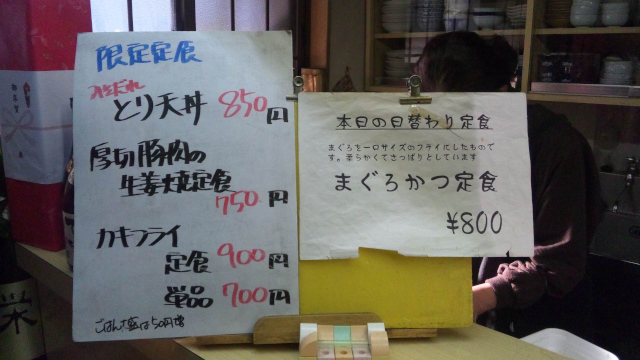 限定定食
みそだれ
とり天丼 850円
厚切豚肉の
生姜焼定食
750円
カキフライ
定食 900円
単品 700円
ごはん大盛は50円増
本日の日替わり定食
まぐろを一口サイズのフライにしたもので
す。柔らかくてさっぱりとしています
まぐろかつ定食
¥800